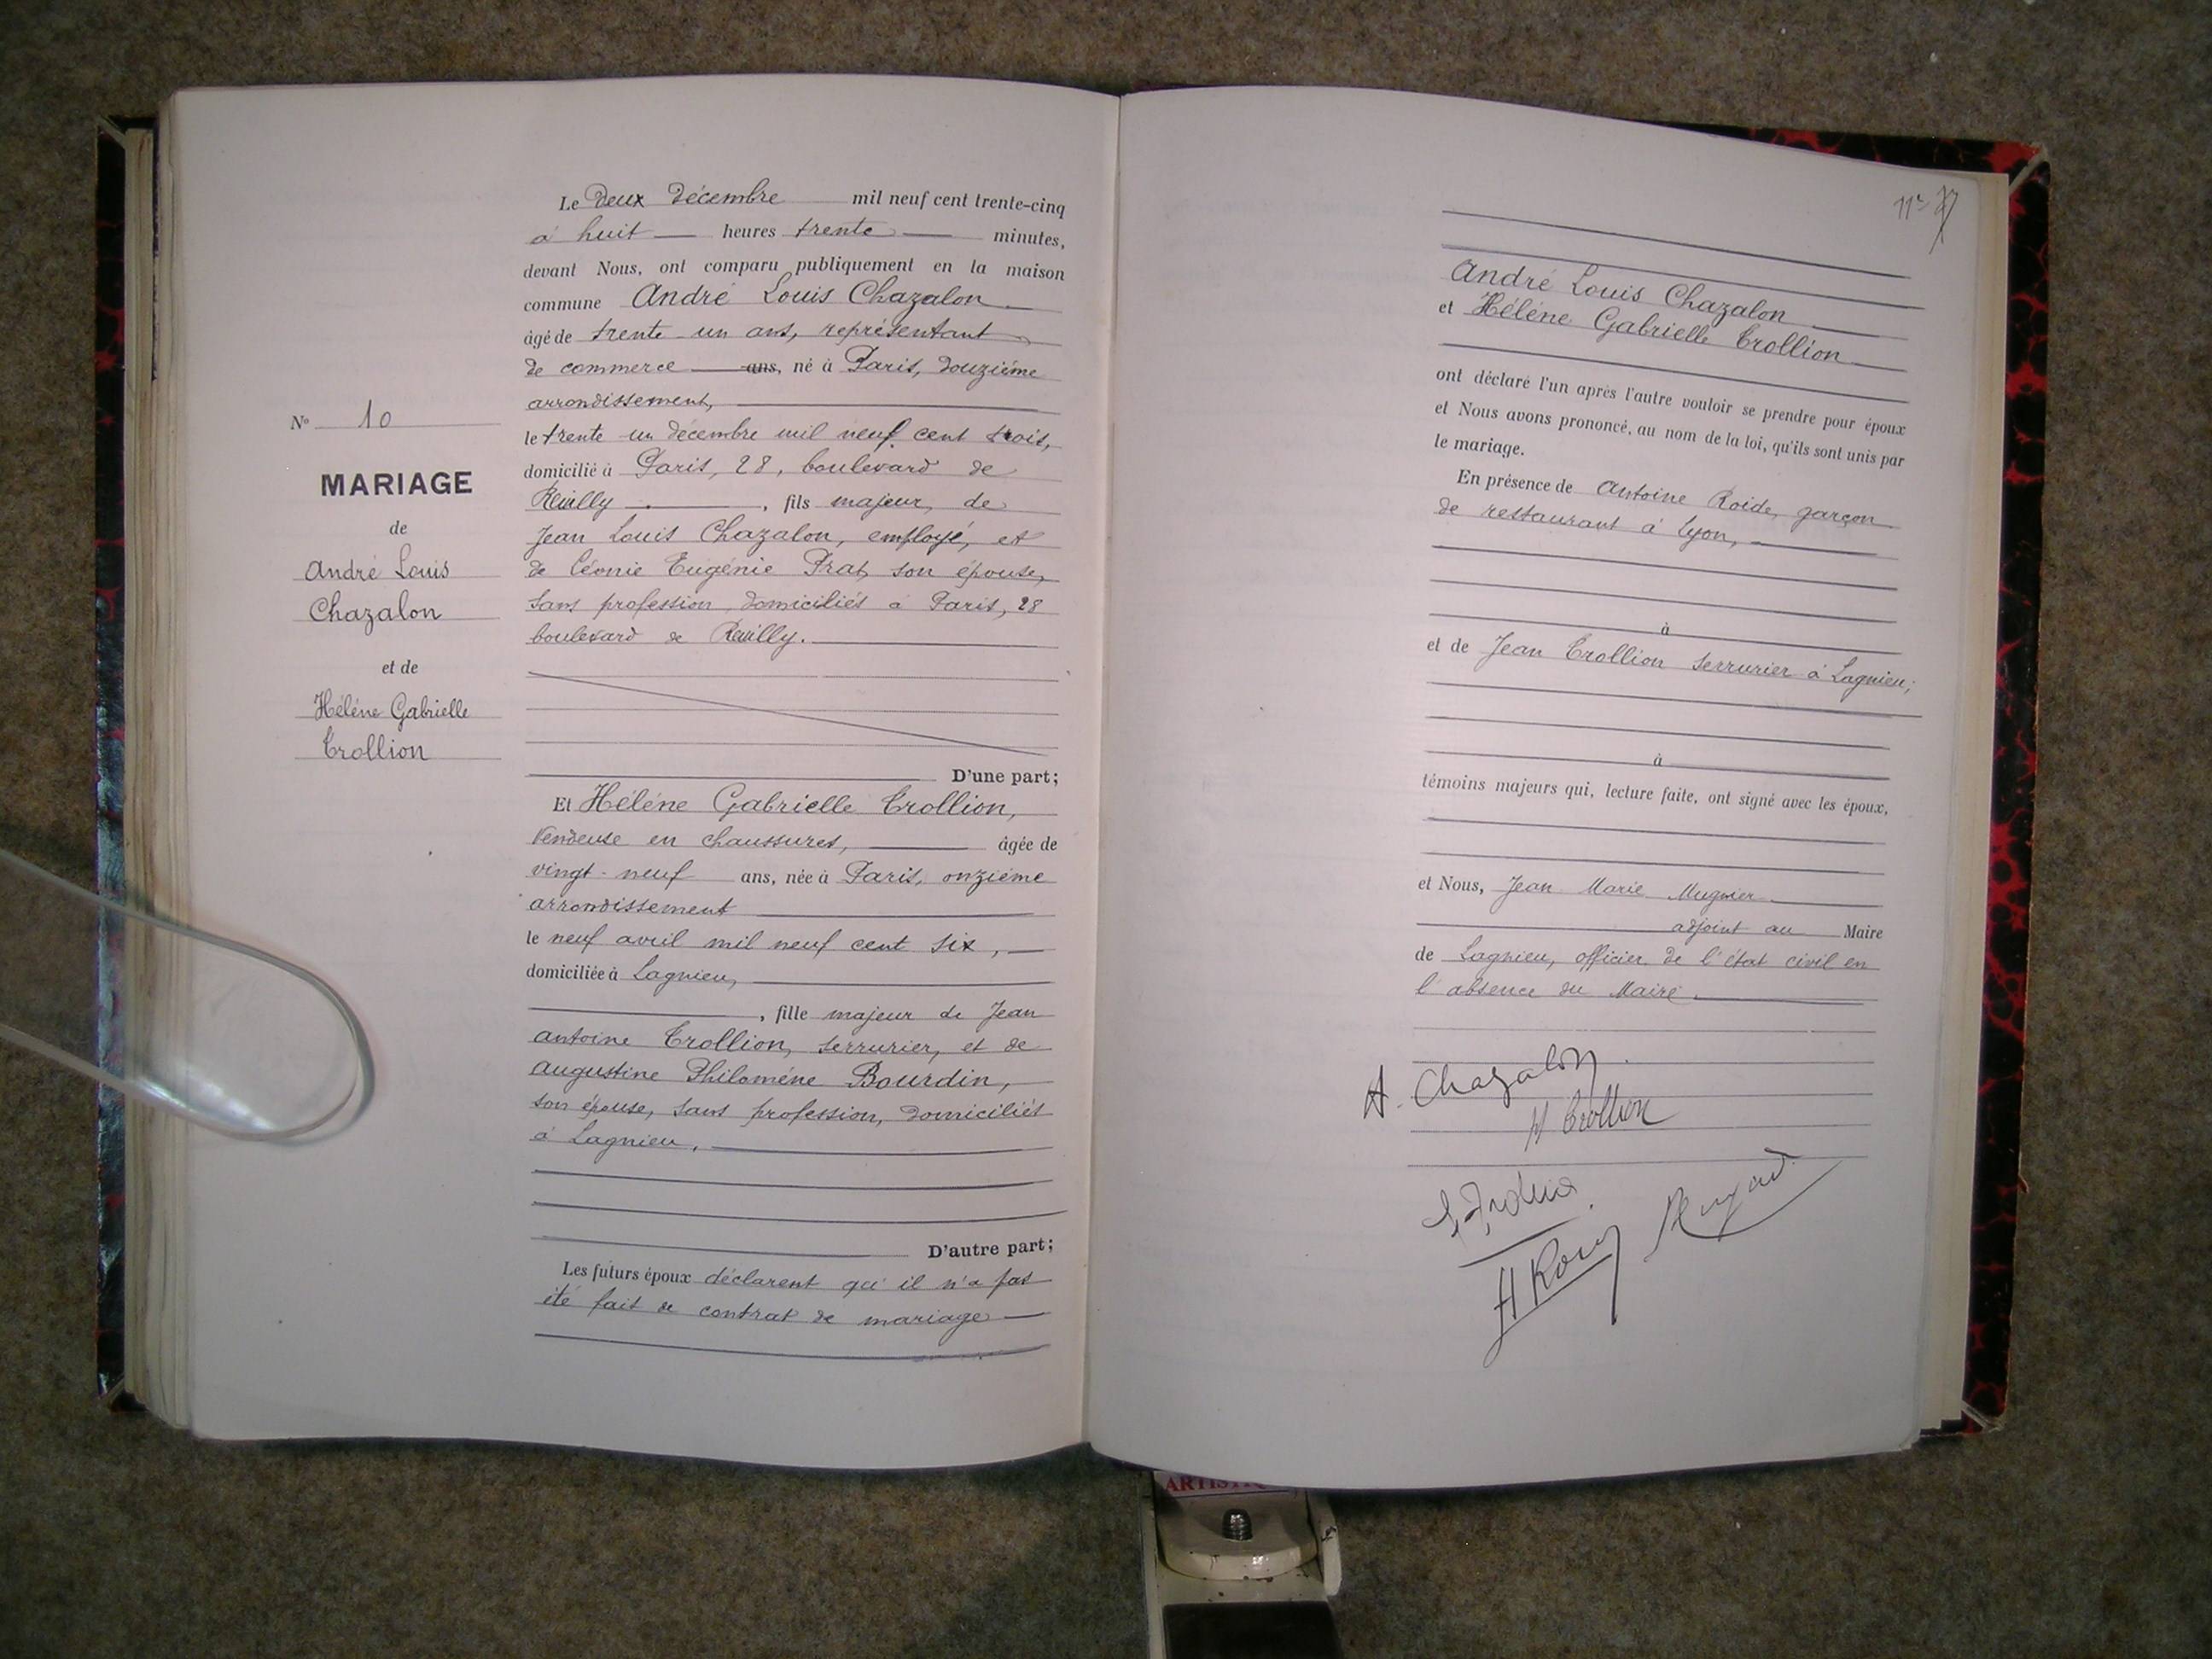 Le Deux Décembre mil neuf cent trente-cinq
à huit heures trente minutes,
devant Nous, ont comparu publiquement en la maison
commune André Louis Chazalon
âgé de trente-un ans, représentant
de commerce ans, né à Paris, douzième
arrondissement,
le trente un décembre mil neuf cent trois,
domicilié à Paris, 28, boulevard de
Reuilly, fils majeur, de
Jean Louis Chazalon, employé, et
de Léonie Eugénie Prat, son épouse,
sans profession, domiciliés à Paris, 28
boulevard de Reuilly.
D'une part;
Et Hélène Gabrielle Trollion,
Vendeuse en chaussures, âgée de
vingt-neuf ans, née à Paris, onzième
arrondissement
le neuf avril mil neuf cent six,
domiciliée à Lagnieu,
, fille majeur de Jean
Antoine Trollion, serrurier, et de
Augustine Philomène Bourdin,
son épouse, sans profession, domiciliés
à Lagnieu,
D'autre part;
Les futurs époux déclarent qu'il n'a pas
été fait de contrat de mariage
N° 10
MARIAGE
de
André Louis
Chazalon
et de
Hélène Gabrielle
Trollion
André Louis Chazalon
et Hélène Gabrielle Trollion
ont déclaré l'un après l'autre vouloir se prendre pour époux
et Nous avons prononcé, au nom de la loi, qu'ils sont unis par
le mariage.
En présence de Antoine Roide, garçon
de restaurant à Lyon,
à
et de Jean Trollion serrurier à Lagnieu;
à
témoins majeurs qui, lecture faite, ont signé avec les époux,
et Nous, Jean Marie Mugnier
adjoint au Maire
de Lagnieu, officier de l'état civil en
l'absence du Maire.
A. Chazalon
H Trollion
ARTISTI